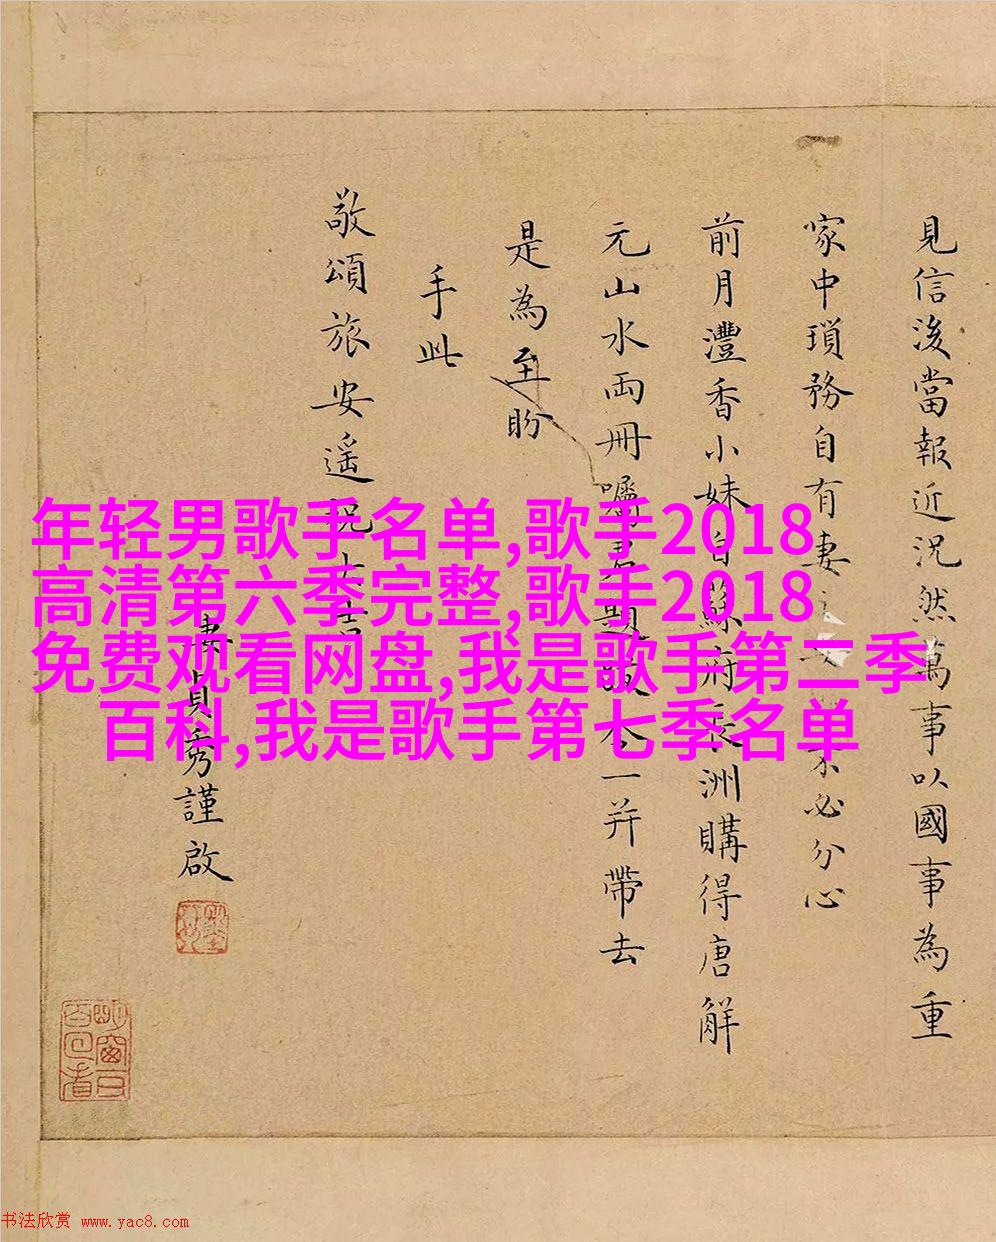 見信後當報近況然萬事以國事為重
家中瑣務自有妻必分心
前月灃香小妹自蘇府長洲購得唐解
元山水両冊囑君題跋今一并帶去
是為至盼
手此
敬頌旅安遥祝大吉
妻貞秀謹啟
年轻男歌手名单,歌手2018
高清第六季完整,歌手2018
免费观看网盘,我是歌手第二季
百科,我是歌手第七季名单
书法欣赏 www.yac8.com